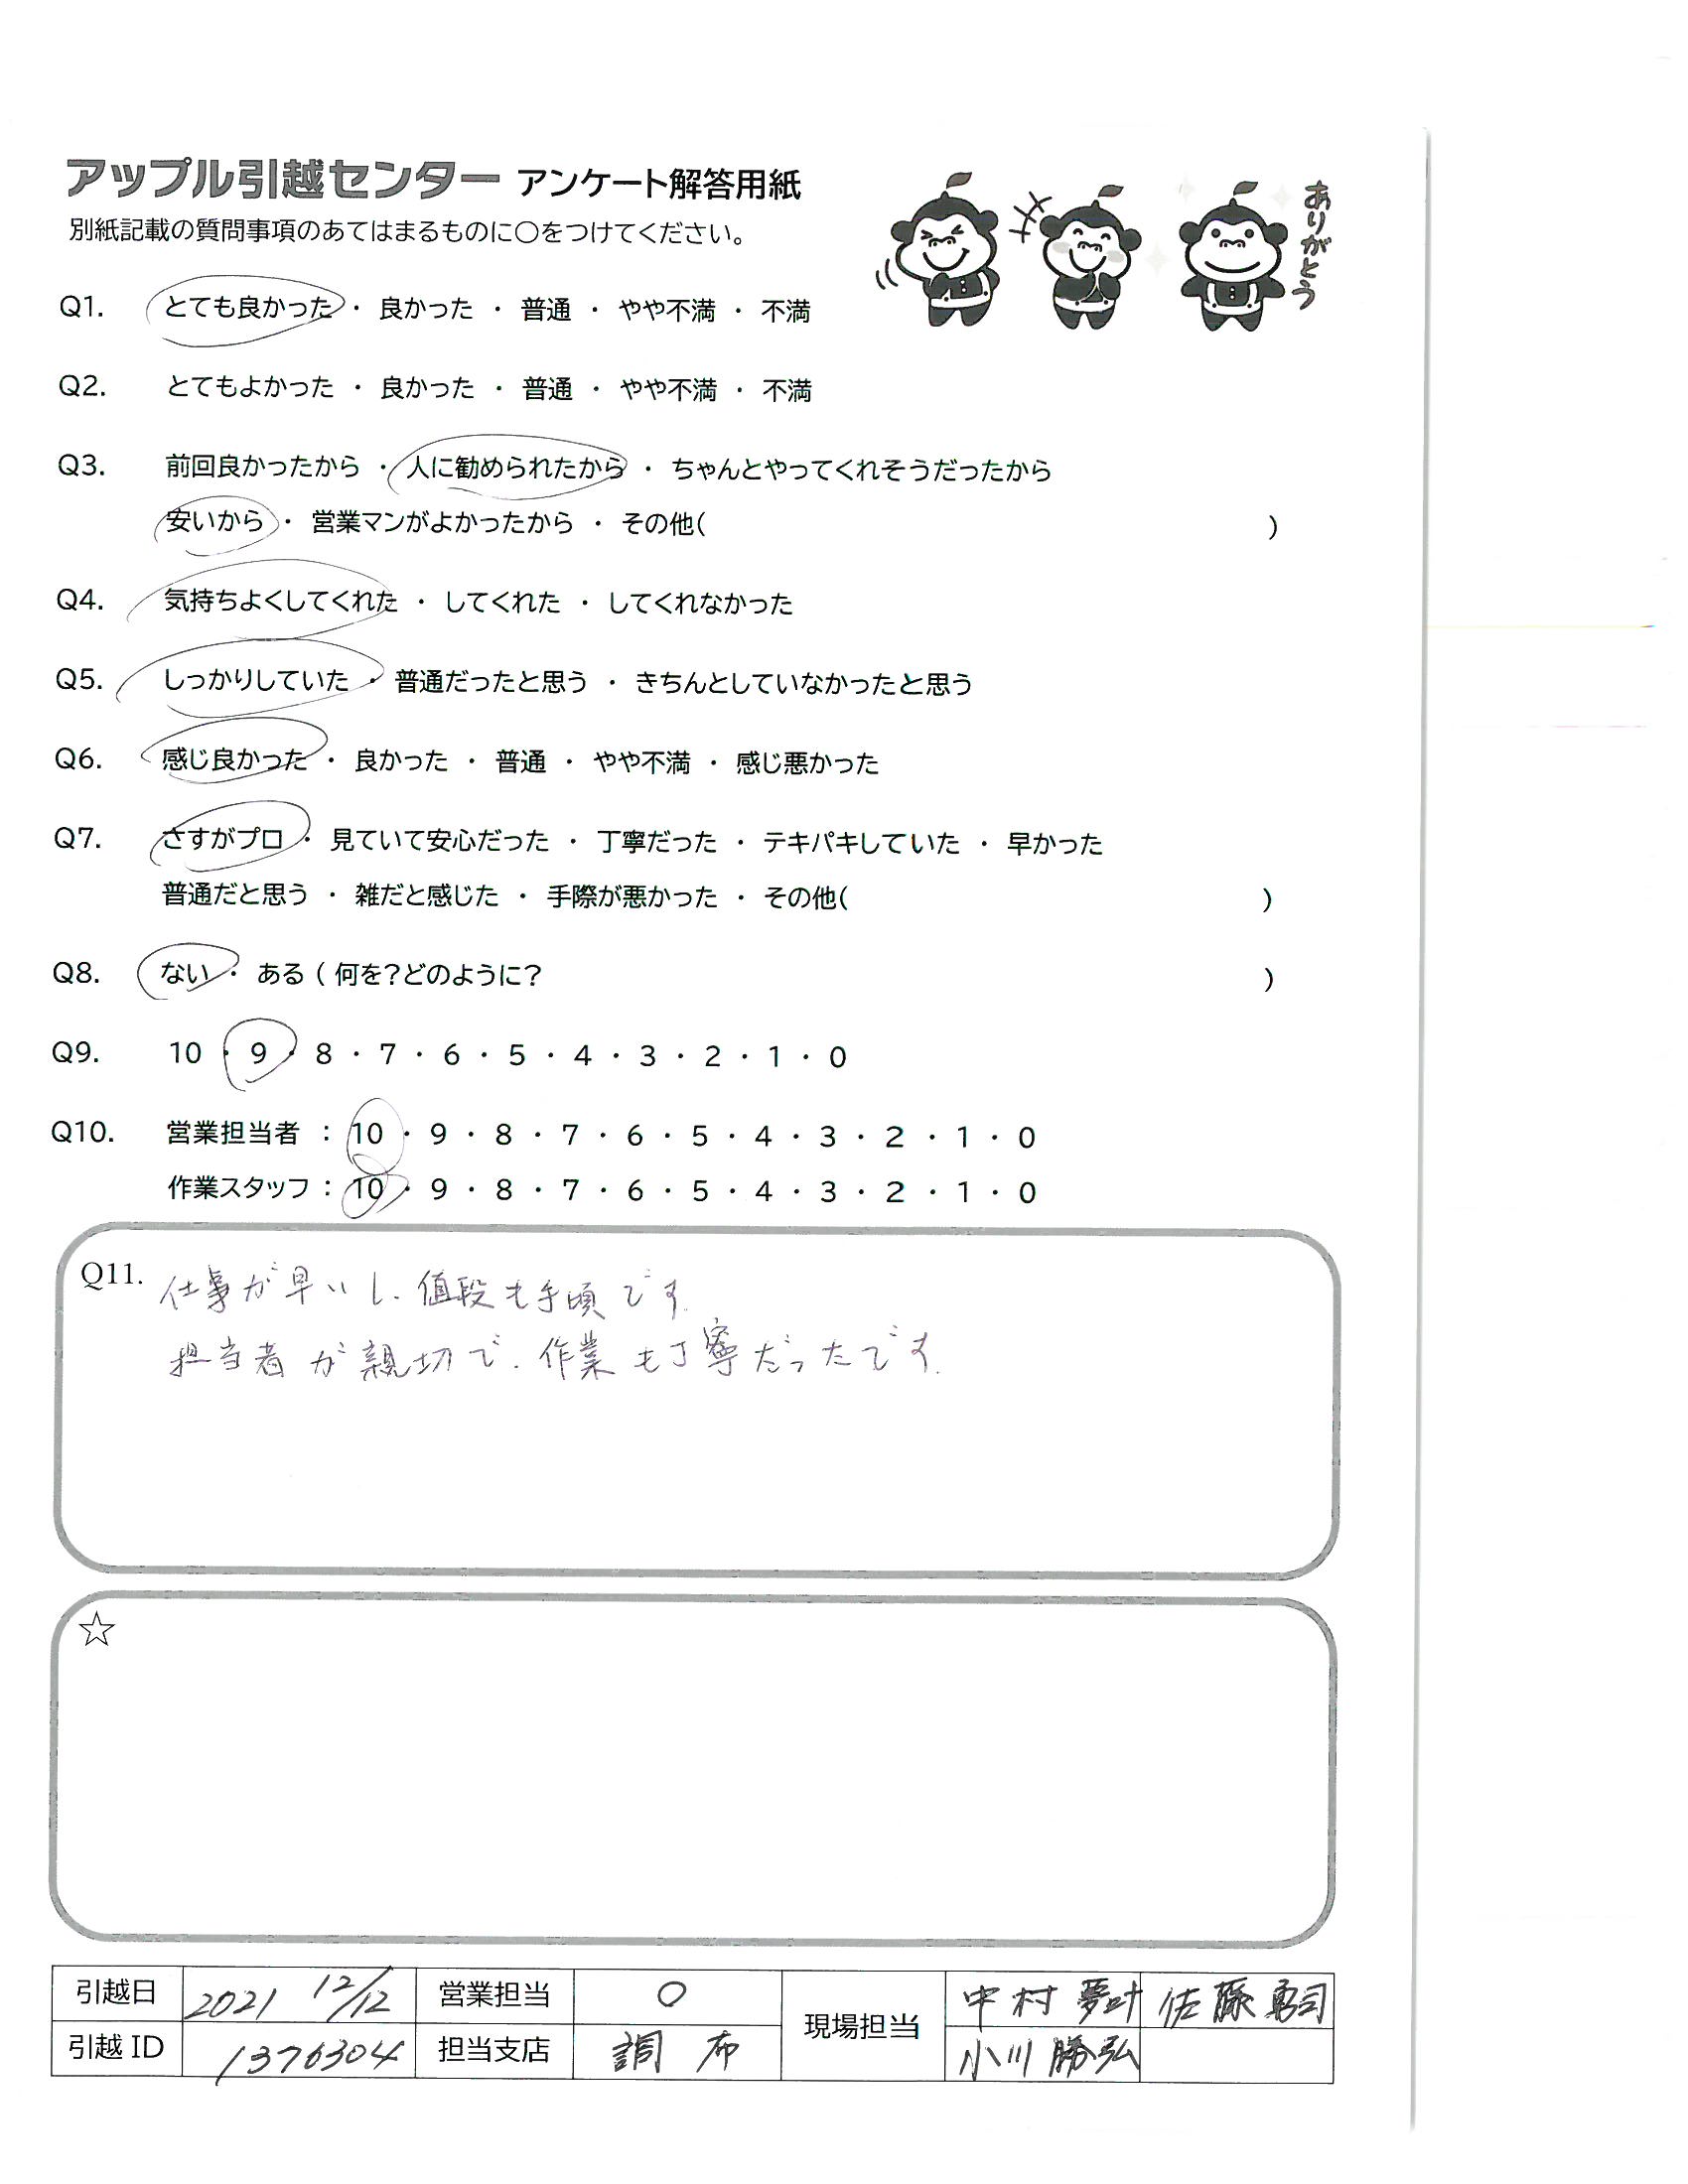 アップル引越センター アンケート解答用紙
別紙記載の質問事項のあてはまるものに○をつけてください。
ありがとう
Q1. とても良かった ・ 良かった ・ 普通 ・ やや不満 ・ 不満
Q2. とてもよかった ・ 良かった ・ 普通 ・ やや不満 ・ 不満
Q3. 前回良かったから ・ 人に勧められたから ・ ちゃんとやってくれそうだったから
安いから ・ 営業マンがよかったから ・ その他( )
Q4. 気持ちよくしてくれた ・ してくれた ・ してくれなかった
Q5. しっかりしていた ・ 普通だったと思う ・ きちんとしていなかったと思う
Q6. 感じ良かった ・ 良かった ・ 普通 ・ やや不満 ・ 感じ悪かった
Q7. さすがプロ ・ 見ていて安心だった ・ 丁寧だった ・ テキパキしていた ・ 早かった
普通だと思う ・ 雑だと感じた ・ 手際が悪かった ・ その他( )
Q8. ない ・ ある ( 何を?どのように? )
Q9. 10 ・ 9 ・ 8 ・ 7 ・ 6 ・ 5 ・ 4 ・ 3 ・ 2 ・ 1 ・ 0
Q10. 営業担当者 : 10 ・ 9 ・ 8 ・ 7 ・ 6 ・ 5 ・ 4 ・ 3 ・ 2 ・ 1 ・ 0
作業スタッフ : 10 ・ 9 ・ 8 ・ 7 ・ 6 ・ 5 ・ 4 ・ 3 ・ 2 ・ 1 ・ 0
Q11. 仕事が早いし、値段も手頃です。
担当者が親切で、作業も丁寧だったです。
☆
引越日 2021 12/12 営業担当 ○ 現場担当 中村 夢叶 佐藤 勇司
引越 ID 1376304 担当支店 調布 小川 勝弘